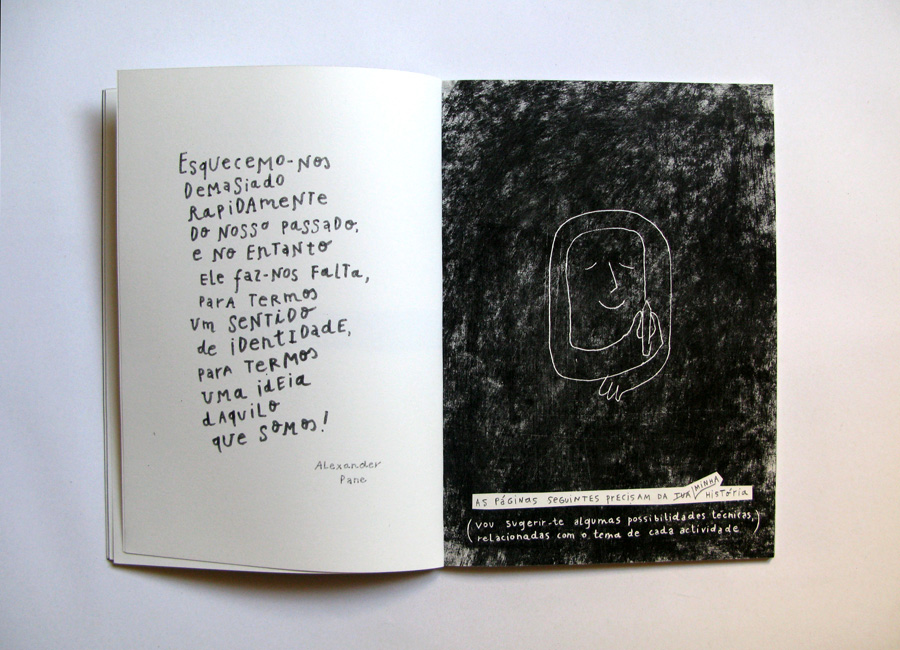 Esquecemo-nos
demasiado
rapidamente
do nosso passado,
e no entanto
ele faz-nos falta,
para termos
um sentido
de identidade,
para termos
uma ideia
daquilo
que somos!
Alexander
Pane
AS PÁGINAS SEGUINTES PRECISAM DA TUA MINHA HISTÓRIA
(vou sugerir-te algumas possibilidades técnicas,
relacionadas com o tema de cada actividade.)